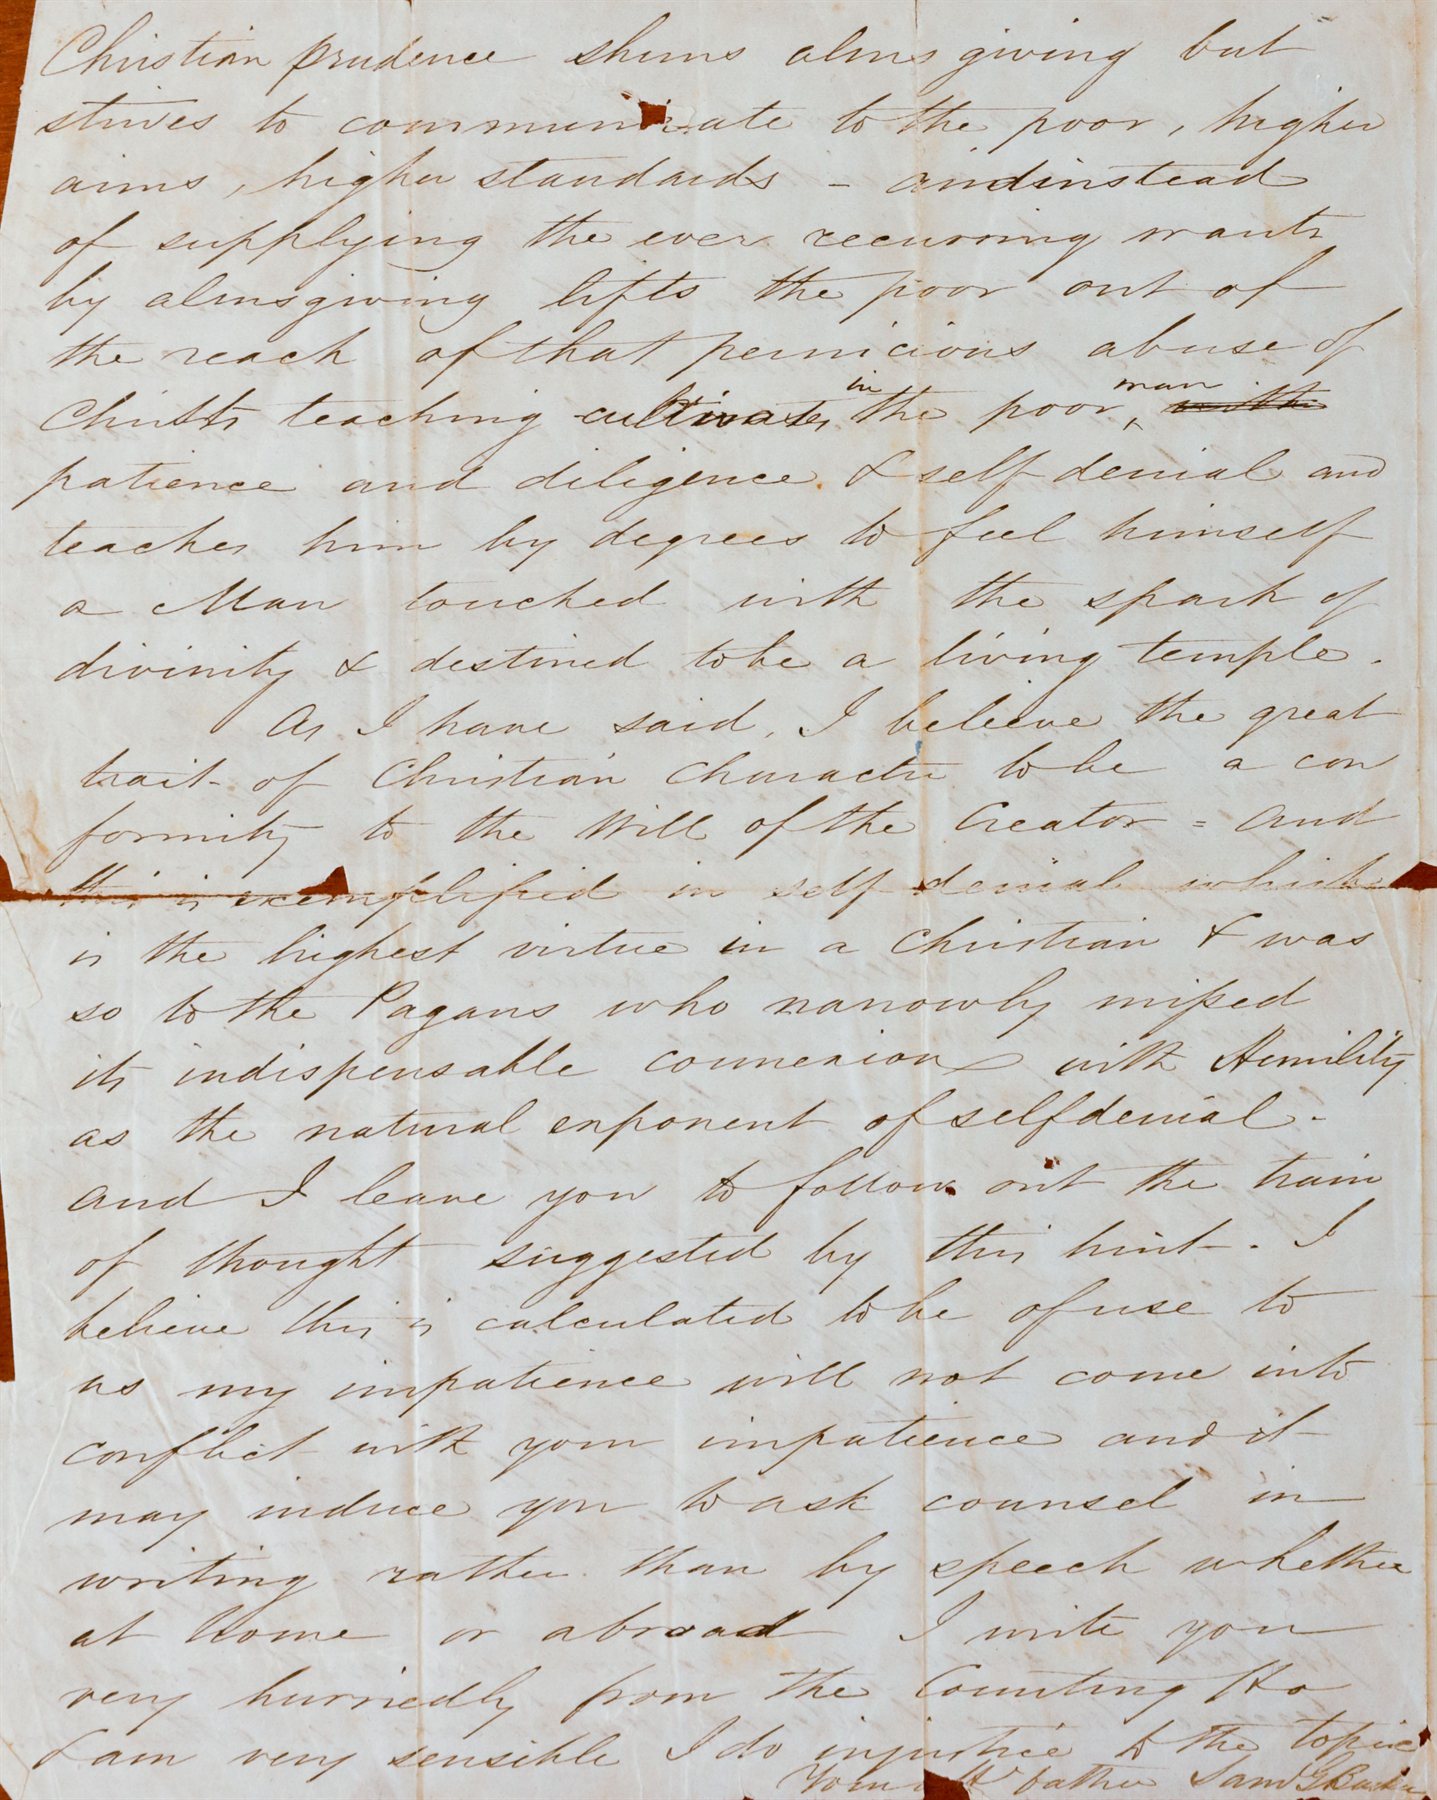 Christian prudence shuns alms giving but
strives to communicate to the poor, higher
aims, higher standards - and instead
of supplying the ever recurring wants
by almsgiving lifts the poor out of
the reach of that pernicious abuse of
Christs teaching cultivates in the poor man
patience and diligence & self denial and
teaches him by degrees to feel himself
a Man touched with the spark of
divinity & destined to be a living temple.
As I have said, I believe the great
trait of Christian Character to be a con
formity to the Will of the Creator = and
this is exemplified in self denial which
is the highest virtue in a Christian & was
so to the Pagans who narrowly missed
its indispensable connexion with Humility
as the natural exponent of self denial -
and I leave you to follow out the train
of thought suggested by this hint - . I
believe this is calculated to be of use to
us my impatience will not come into
conflict with your impatience and it
may induce you to ask counsel in
writing rather than by speech whether
at home or abroad I write you
very hurriedly from the Counting Ho
& am very sensible I do injustice to the topic
Your father Saml G